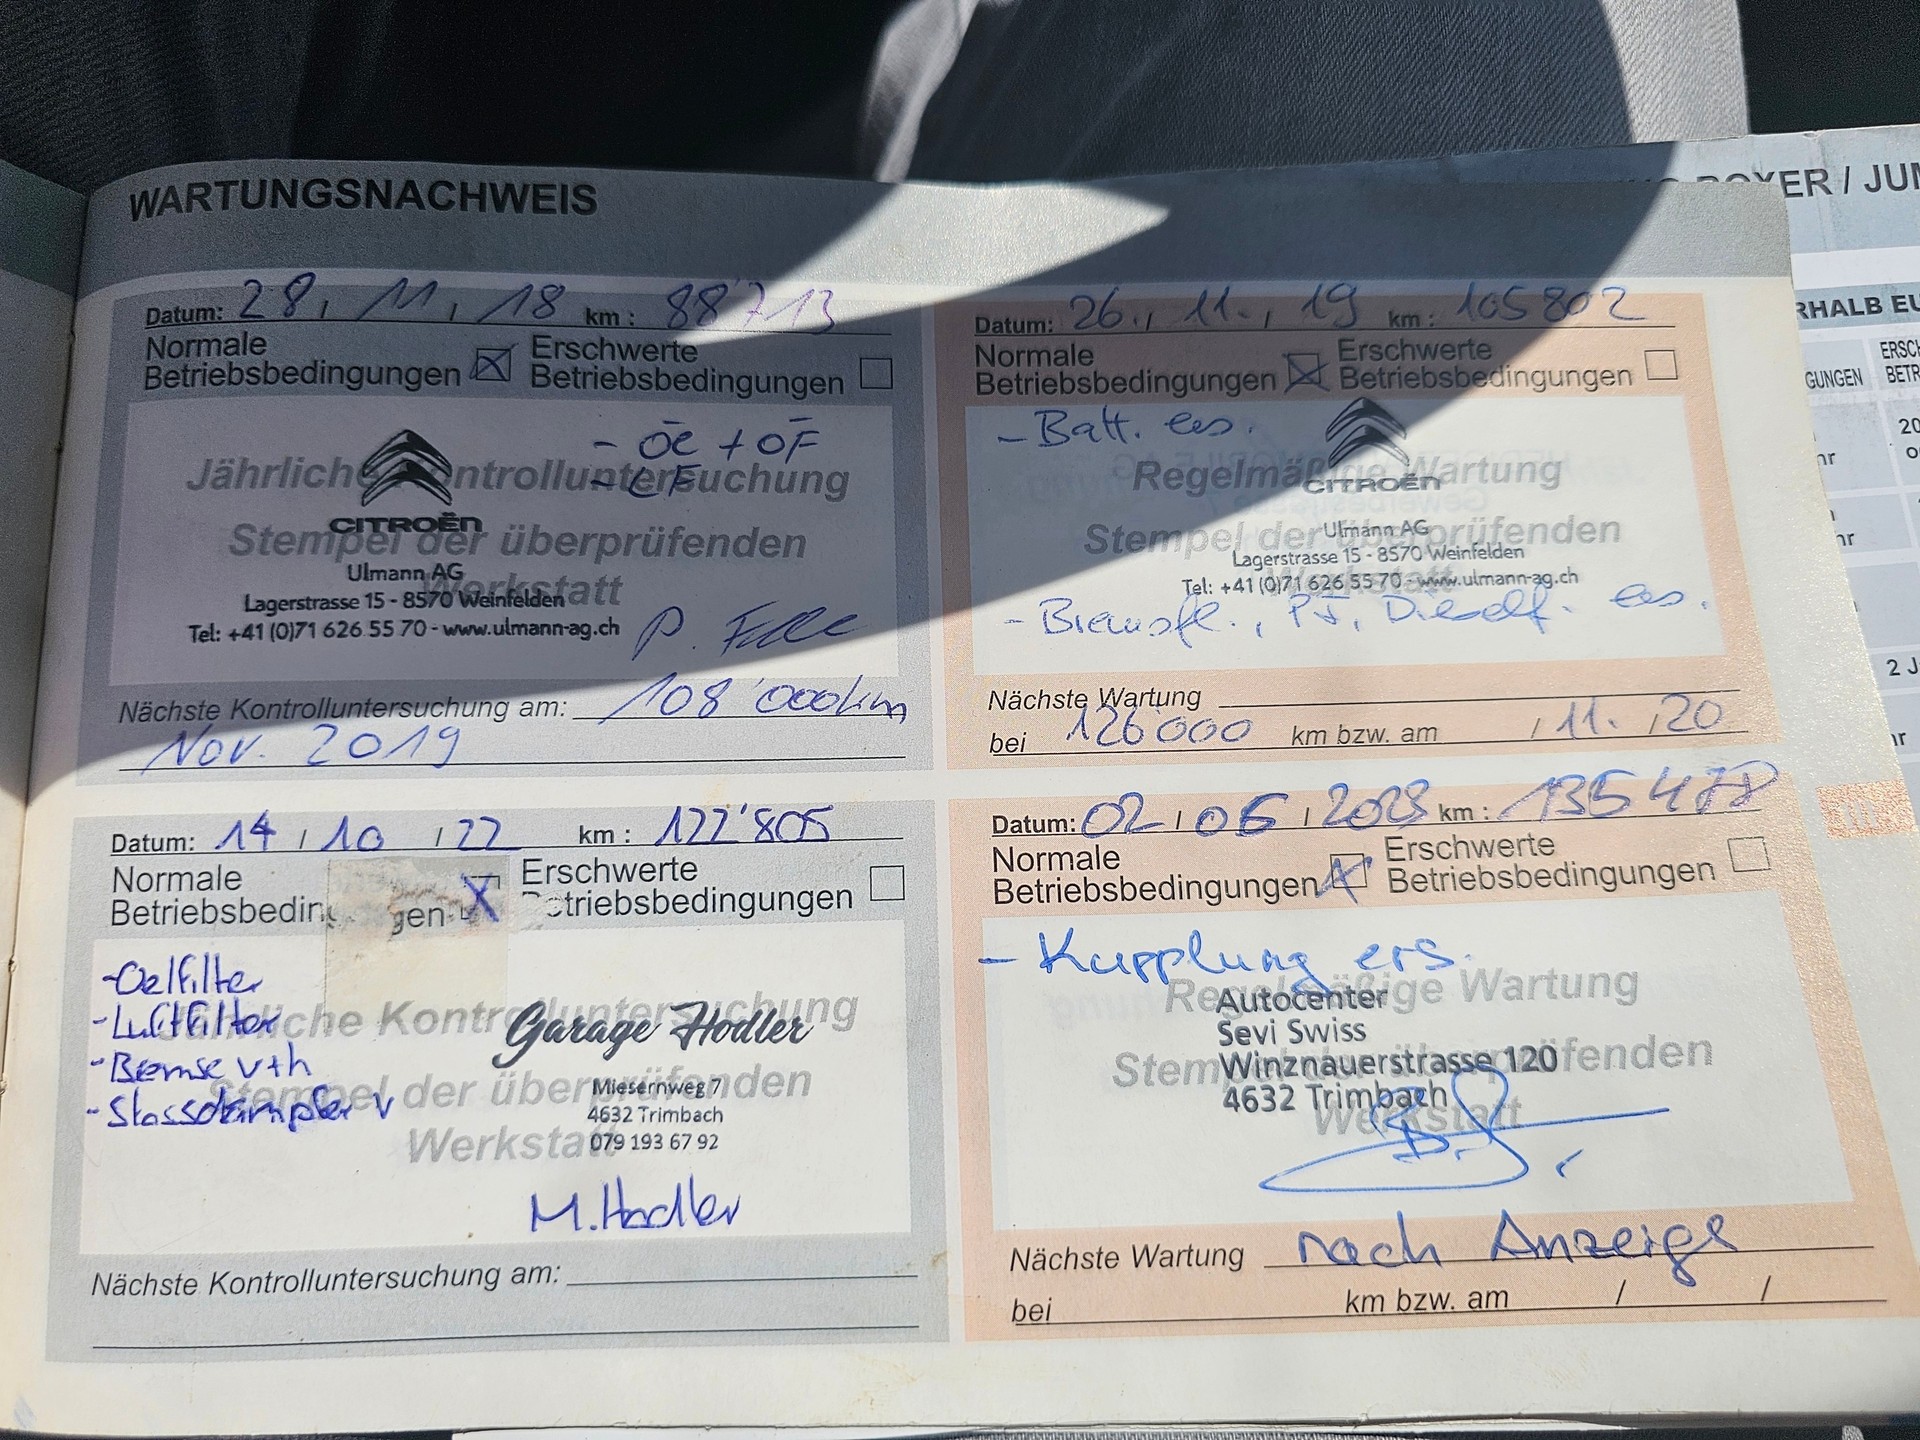 WARTUNGSNACHWEIS
Datum: 28. 11. 18 km: 88'713
Normale Erschwerte
Betriebsbedingungen Betriebsbedingungen
- Öl + ÖF
- LF
Jährliche Kontrolluntersuchung
CITROËN
Stempel der überprüfenden
Werkstatt
Ulmann AG
Lagerstrasse 15 - 8570 Weinfelden
Tel: +41 (0)71 626 55 70 - www.ulmann-ag.ch
Nächste Kontrolluntersuchung am: 108'000km
Nov. 2019
Datum: 26. 11. 19 km: 105802
Normale Erschwerte
Betriebsbedingungen Betriebsbedingungen
- Batt. ers.
Regelmäßige Wartung
CITROËN
Stempel der überprüfenden
Werkstatt
Ulmann AG
Lagerstrasse 15 - 8570 Weinfelden
Tel: +41 (0)71 626 55 70 - www.ulmann-ag.ch
- Bremsfl., Dieself. ers.
Nächste Wartung
bei 126'000 km bzw. am / 11. / 20
Datum: 14 / 10 / 22 km: 122'805
Normale Erschwerte
Betriebsbedingungen Betriebsbedingungen
- Oelfilter
- Luftfilter
- Bremse v+h
- Stossdämpfer v
Jährliche Kontrolluntersuchung
Stempel der überprüfenden
Werkstatt
Garage Hodler
Miesernweg 7
4632 Trimbach
079 193 67 92
M. Hodler
Nächste Kontrolluntersuchung am:
Datum: 02 / 06 / 2023 km: 135478
Normale Erschwerte
Betriebsbedingungen Betriebsbedingungen
- Kupplung ers.
Regelmäßige Wartung
Stempel der überprüfenden
Werkstatt
Autocenter
Sevi Swiss
Winznauerstrasse 120
4632 Trimbach
Nächste Wartung nach Anzeige
bei km bzw. am / /
BOXER / JUM
RHALB EU
ERSCH
GUNGEN BETR
20
2 J